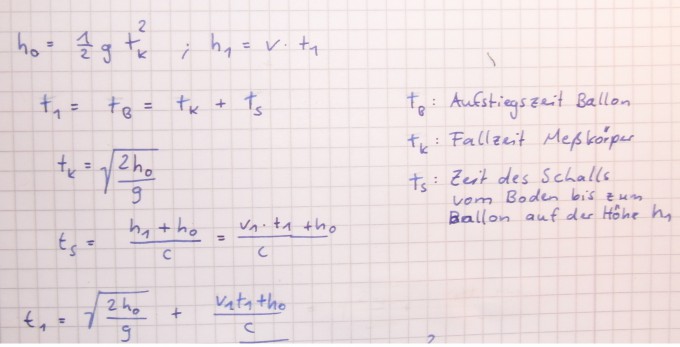 h₀ = ½ g t_k² ; h₁ = v · t₁
t₁ = t_B = t_k + t_s
t_k = √(2h₀/g)
t_s = (h₁ + h₀)/c = (v₁ · t₁ + h₀)/c
t₁ = √(2h₀/g) + (v₁t₁ + h₀)/c
t_B : Aufstiegszeit Ballon
t_k : Fallzeit Meßkörper
t_s : Zeit des Schalls
vom Boden bis zum
Ballon auf der Höhe h₁